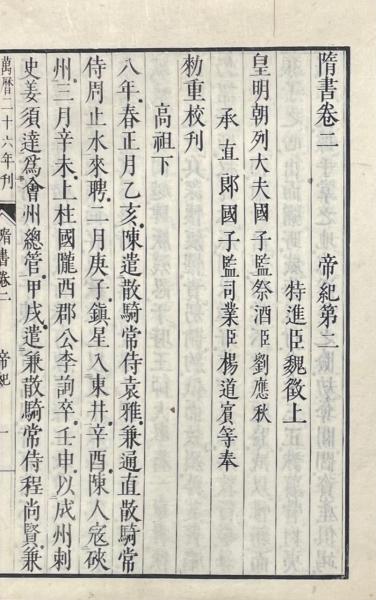 隋書卷二　帝紀第二
特進臣魏徵上
皇明朝列大夫國子監祭酒臣劉應秋
承直郎國子監司業臣楊道賓等奉
勑重校刊
高祖下
八年春正月乙亥陳遣散騎常侍袁雅兼通直散騎常
侍周止水來聘二月庚子鎮星入東井辛酉陳人寇硤
州三月辛未上柱國隴西郡公李詢卒壬申以成州刺
史姜須達爲會州總管甲戌遣兼散騎常侍程尚賢兼
萬曆二十六年刊
隋書卷二
帝紀
一